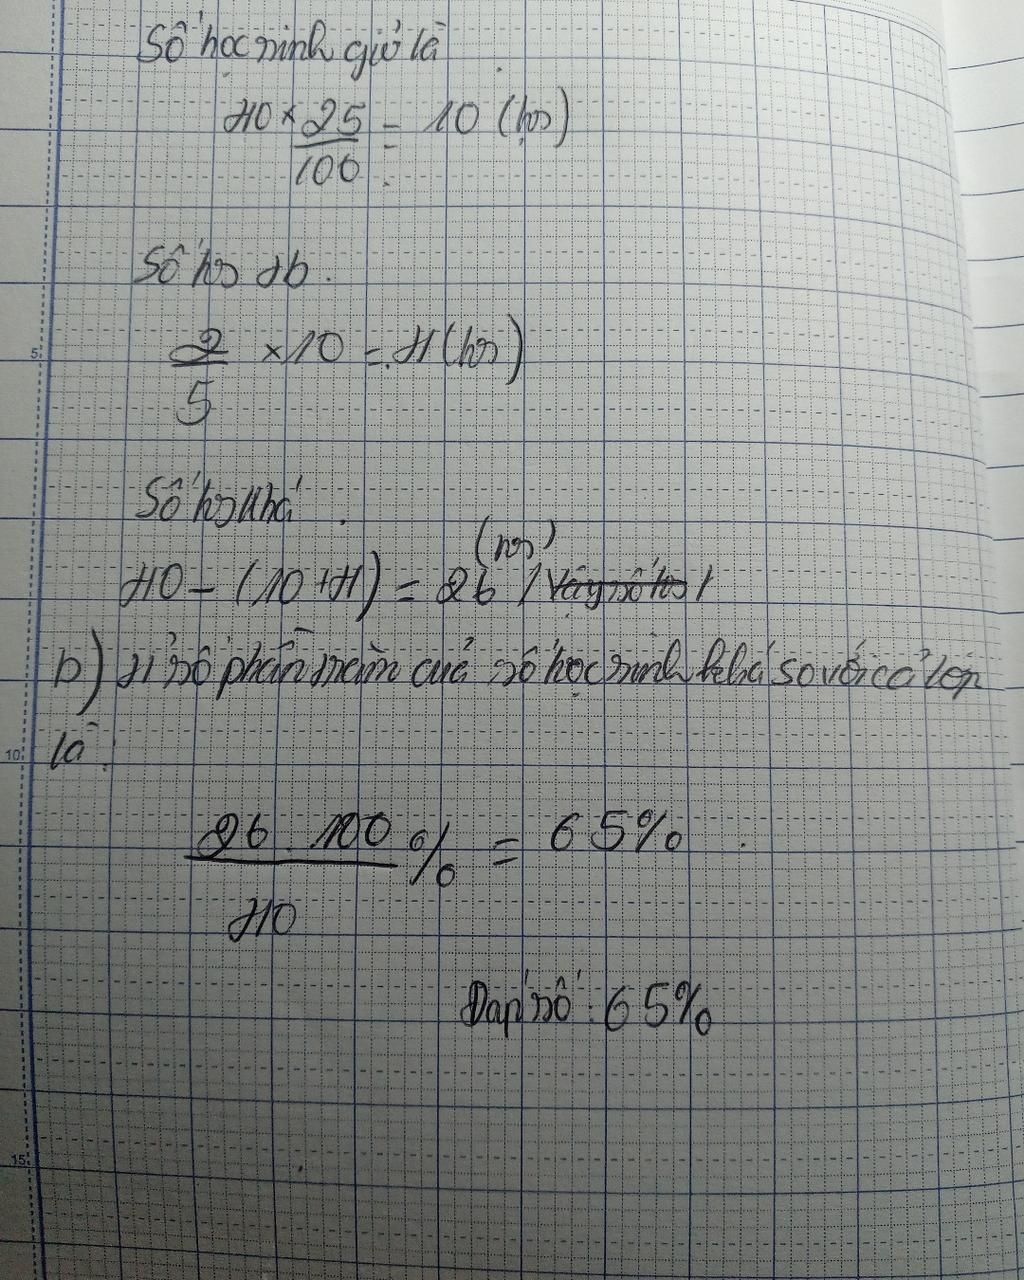 Số học sinh giỏi là
40 × 25/100 = 10 (hs)
Số hs tb.
2/5 × 10 = 4 (hs)
Số hs khá.
40 - (10 + 4) = 26 (hs)
b) Tỉ số phần trăm của số học sinh khá so với cả lớp
là:
26 . 100/40 % = 65%
Đáp số: 65%
5
10
15